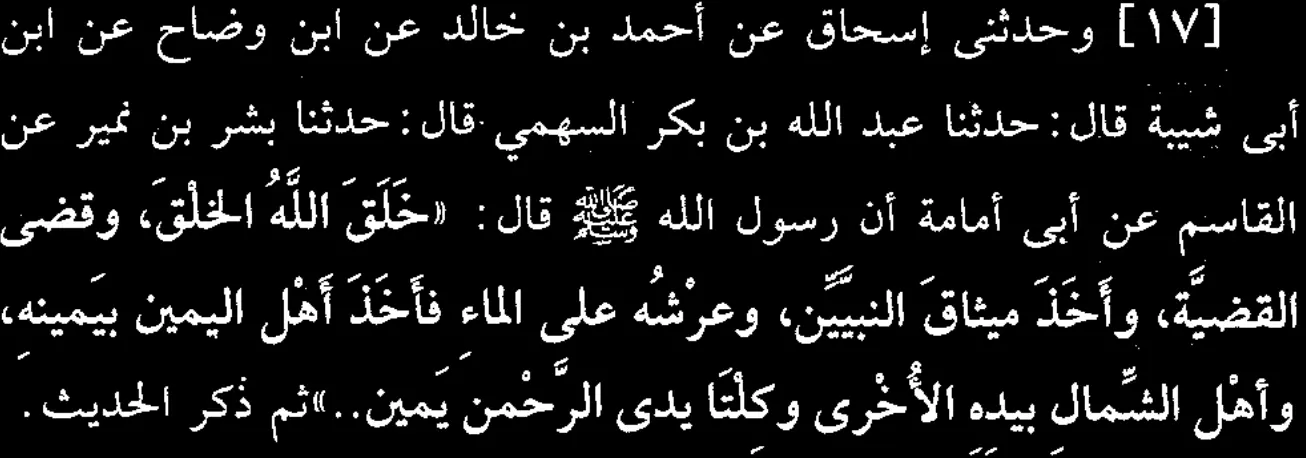 [١٧] وحدثنى إسحاق عن أحمد بن خالد عن ابن وضاح عن ابن
أبى شيبة قال: حدثنا عبد الله بن بكر السهمي قال: حدثنا بشر بن نمير عن
القاسم عن أبى أمامة أن رسول الله ﷺ قال: «خَلَقَ اللَّهُ الخلْقَ، وقضى
القضيَّة، وأَخَذَ ميثاقَ النبيِّين، وعرْشُه على الماء فأَخَذَ أَهْل اليمين بيَمينِه،
وأهْل الشِّمالِ بيدِه الأُخْرى وكِلْتَا يدى الرَّحْمنِ يَمين..» ثم ذكر الحديث.